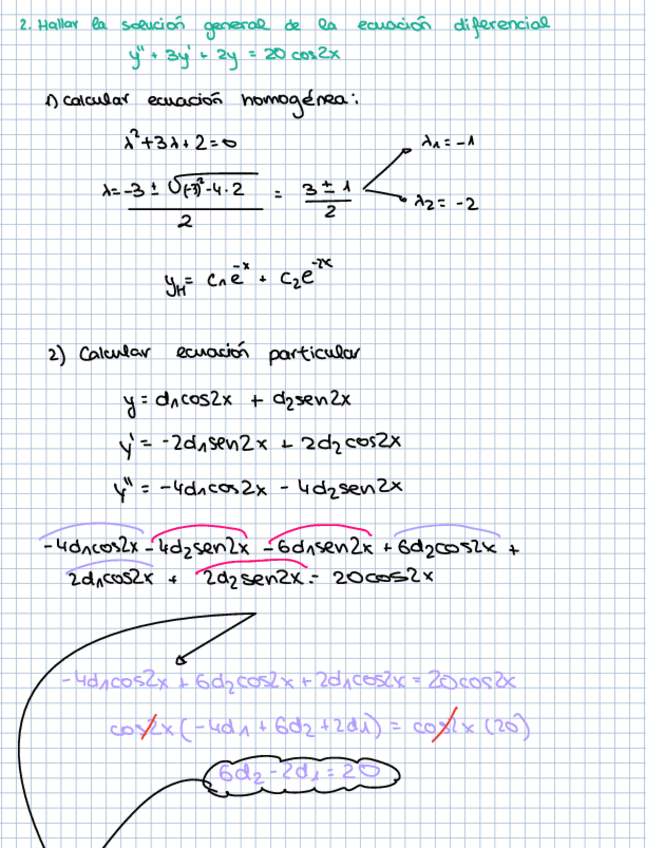 2. Hallar la solución general de la ecuación diferencial
y'' + 3y' + 2y = 20 cos2x
1) calcular ecuación homogénea:
λ² + 3λ + 2 = 0
λ₁ = -1
λ = (-3 ± √((-3)² - 4·2)) / 2 = (3 ± 1) / 2
λ₂ = -2
y_H = c₁e^-x + c₂e^-2x
2) Calcular ecuación particular
y = d₁cos2x + d₂sen2x
y' = -2d₁sen2x + 2d₂cos2x
y'' = -4d₁cos2x - 4d₂sen2x
-4d₁cos2x - 4d₂sen2x - 6d₁sen2x + 6d₂cos2x +
2d₁cos2x + 2d₂sen2x = 20cos2x
-4d₁cos2x + 6d₂cos2x + 2d₁cos2x = 20cos2x
cos2x (-4d₁ + 6d₂ + 2d₁) = cos2x (20)
6d₂ - 2d₁ = 20